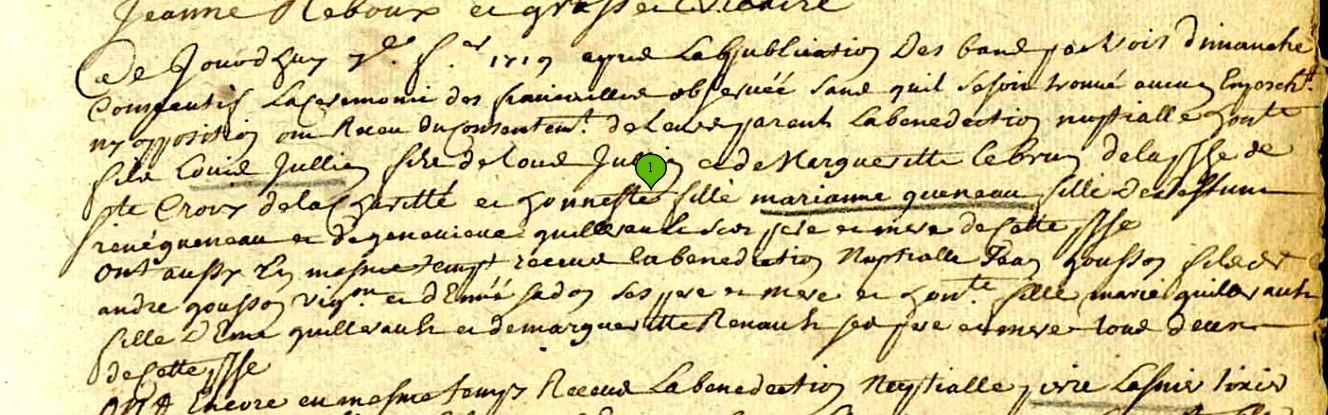 Jeanne Reboux et
Ce Jourdhuy 7e. f.er 1719 apres La publication Des bans par trois dimanche
Consecutif La ceremonie des fiancailles observéé sans quil se soit trouvé aucun Empesch.t
ny opposition ont Receu du consentem.t de Leurs parents La benediction nuptialle honte
fils Louis Jullien fils de Louis Jullien et de Margueritte Lebrun de la psse de
ste Croix de la Charitté et honneste fille marianne queneau fille De deffunt
rené queneau et de genevieve quillerault ses pere et mere de Cette psse
Ont aussy En mesme temps receus la benediction Nuptialle Jean gousson fils de
andre gousson vigon et d'Emée ses pere et mere et honte. fille marie quillerault
fille D'Eme quillerault et de margueritte Renault ses pere et mere tous deux
de Cette psse
Ont Encore en mesme temps Receus La benediction Nuptialle